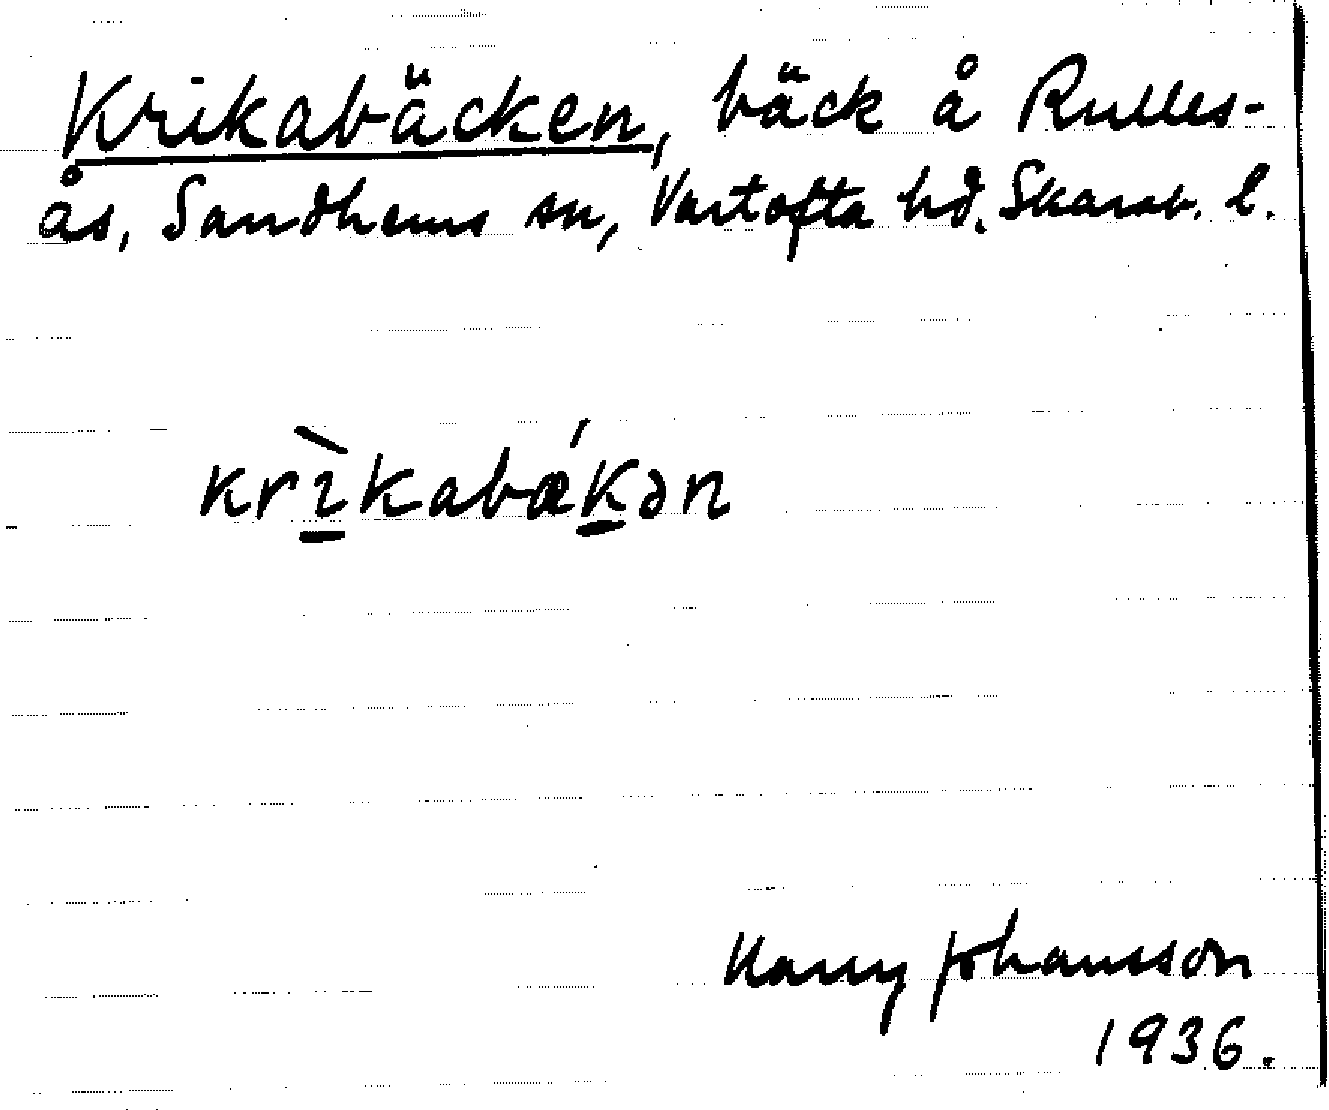 Krikabäcken, bäck å Rulles-
ås, Sandhems sn, Vartofta hd. Skarab. l.
krìkabǽkən
Harry Johansson
1936.